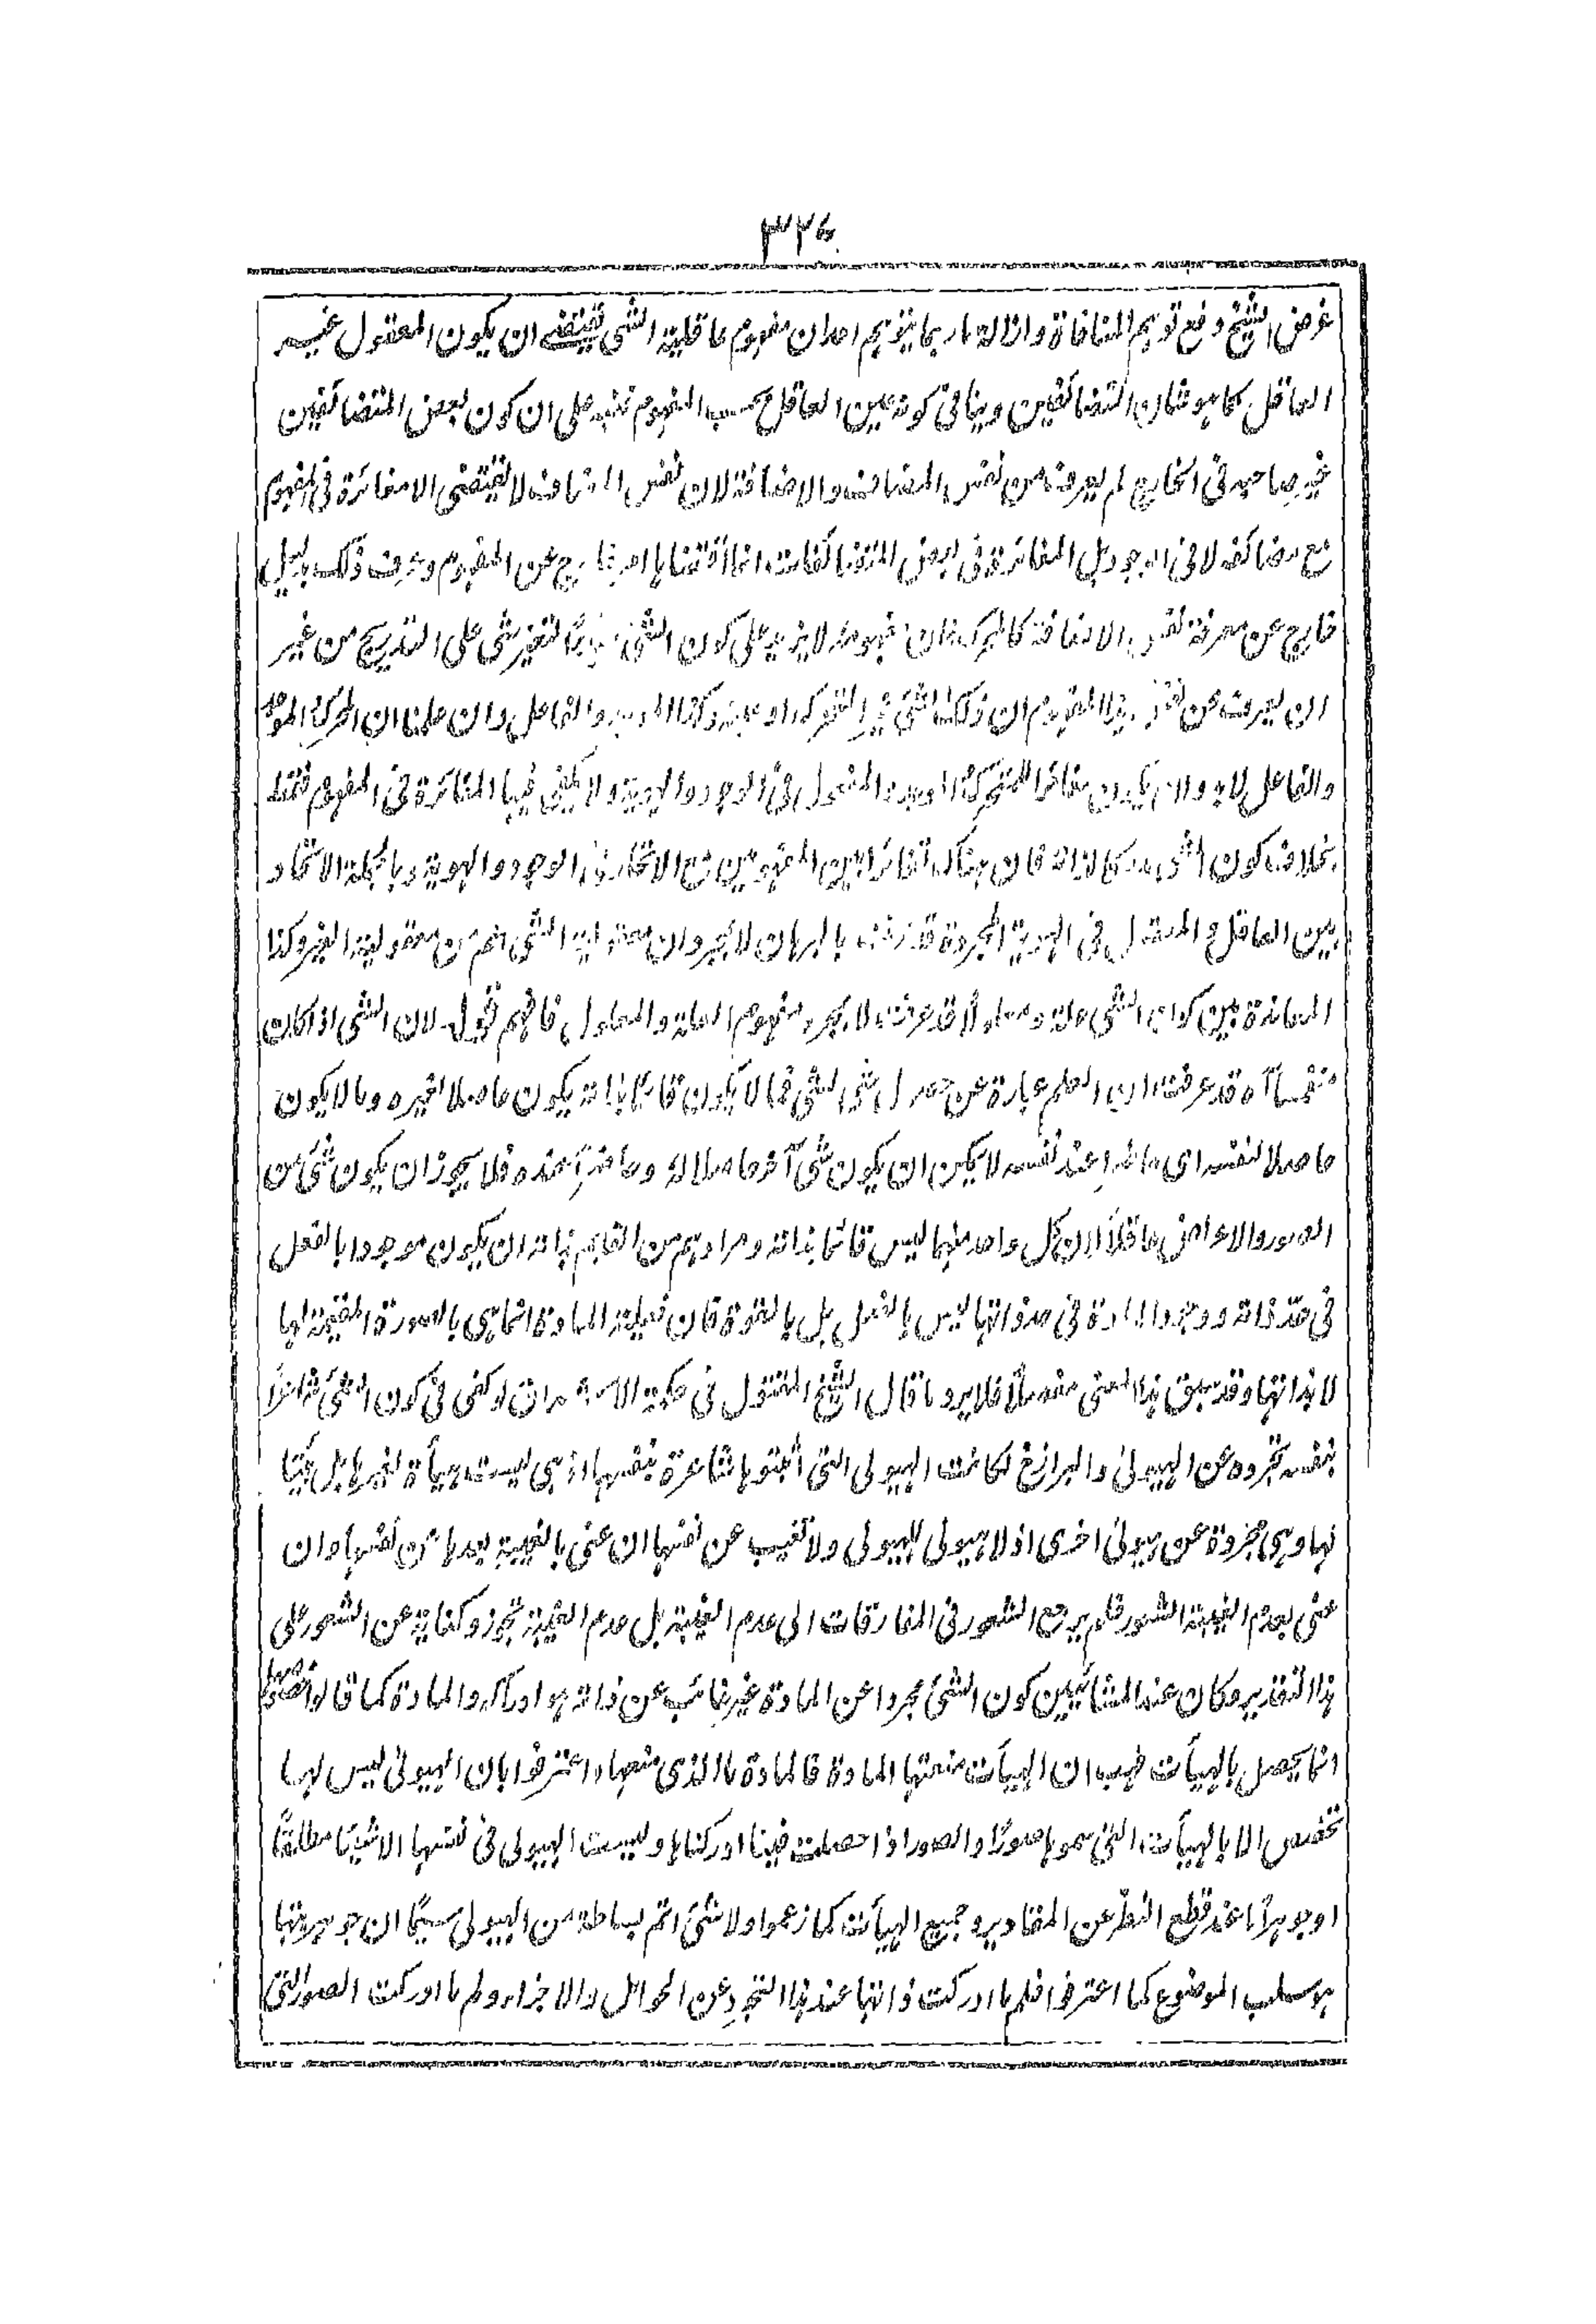 غرض الشيخ دفع توهم المنافاة وان لاه ربما يتوهم احد ان مفهوم عاقلية الشئ تقتضے ان يكون المعقول غير
العاقل كما هو شان المتضائفين وينافى كونه عين العاقل بحسب المفهوم فنبه على ان كون بعض المتضائفين
غير صاحبه فى الخارج لم يعرف من نفس المضاف والاضافة لان نفس المضاف لا يقتضى الا مغائرة فى المفهوم
مع مضائفه لا فى الوجود بل المغائرة فى بعض المتضائفات انما اقتضاها امر خارج عن المفهوم وعرف ذلك بدليل
خارج عن معرفة نفس الاضافة كالمحرك فان مفهومه لا يزيد على كون الشئ مبدأ لتغير شئ على التدريج من غير
ان يعرف من نفس هذا المفهوم ان ذلك الشئ غير المتحرك او عينه وكذا الموجد والفاعل وان علمنا ان المحرك والموجد
والفاعل لابد وان يكون مغائرا للمتحرك والموجد والمفعول فى الوجود والهوية ولا يكفى فيها المغائرة فى المفهوم فقط
بخلاف كون الشئ مدركا لذاته فان هناك تغائرا بين المفهومين مع الاتحاد فى الوجود والهوية وبالجملة الاتحاد
بين العاقل والمعقول فى الهوية المجردة قد عرف بالبرهان لا بمجرد ان معقولية الشئ اعم من معقولية الغير وكذا
المعاندة بين كون الشئ علة ومعلولا قد عرفت لا بمجرد مفهوم العلة والمعلول فافهم قوله لان الشئ اذا كان
منقسما آه قد عرفت ان العلم عبارة عن حصول شئ لشئ فما لا يكون قائما بذاته يكون حاصلا لغيره وما لا يكون
حاصلا لنفسه اى حاضرا عند نفسه لا يمكن ان يكون شئ آخر حاصلا له وحاضرا عنده فلا يجوز ان يكون شئ من
الصور والاعراض عاقلا لان كل واحد منهما ليس قائما بذاته ومرادهم من القائم بذاته ان يكون موجودا بالفعل
فى حد ذاته ووجود المادة فى حد ذاتها ليس بالفعل بل بالقوة فان فعلية المادة انما هى بالصورة المقيمة لها
لا بذاتها وقد سبق هذا المعنى مفصلا فلا يرد ما قال الشيخ المقتول فى حكمة الاشراق لو كفى فى كون الشئ شاعرا
بنفسه تجرده عن الهيولى والبرازخ لكانت الهيولى التى اثبتوها شاعرة بنفسها اذ هى ليست هيأة لغيرها بل هيأتها
لها وهى مجردة عن هيولى اخرى اذ لا هيولى للهيولى ولا تغيب عن نفسها ان عنى بالغيبة بعدها عن نفسها وان
عنى بعدم الغيبة الشعور فلم يرجع الشعور فى المفارقات الى عدم الغيبة بل عدم الغيبة تجوز وكناية عن الشعور على
هذا التقدير وكان عند المشائيين كون الشئ مجردا عن المادة غير غائب عن ذاته هو ادراكه والمادة كما قالوا خصوصها
انما يحصل بالهيأت فهب ان الهيأت منعتها المادة فالمادة ما الذى منعها واعترفوا بان الهيولى ليس لها
تخصص الا بالهيأت التى سموها صورا والصور اذا حصلت فينا ادركناها وليست الهيولى فى نفسها الا شيئا مطلقا
او جوهرا ما عند قطع النظر عن المقادير وجميع الهيأت كما زعموا ولا شئ اتم بساطة من الهيولى سيما ان جوهريتها
هو سلب الموضوع كما اعترفوا فلم ما ادركت ذاتها عند هذا التجرد عن الحوامل والاجزاء ولم ما ادركت الصور التى